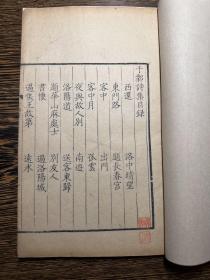 于鄴詩集目錄
西還 洛中晴望
東門路 題長春宮
客中 出門
客中月 孤雲
夜與故人別 南遊
洛陽道 送客東歸
題華山麻處士 別友人
書懷 過洛陽城
過侯王故第 遠水